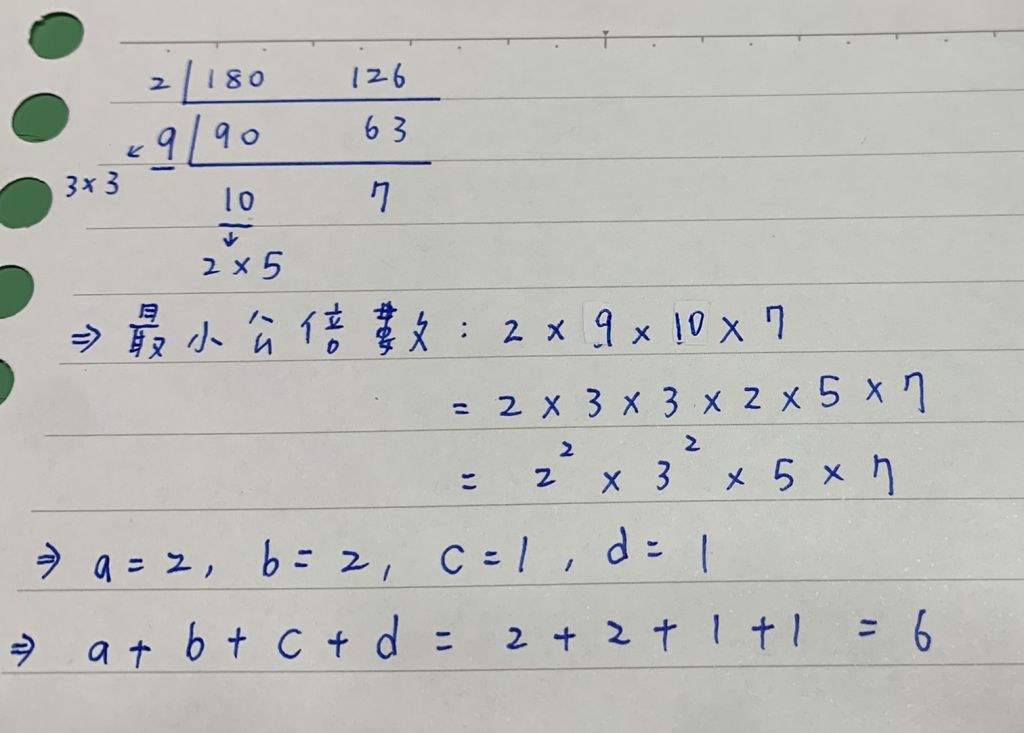 2 180 126
9 90 63
3×3
10 7
2×5
⇒ 最小公倍數: 2 × 9 × 10 × 7
= 2 × 3 × 3 × 2 × 5 × 7
= 2² × 3² × 5 × 7
⇒ a = 2, b = 2, c = 1, d = 1
⇒ a + b + c + d = 2 + 2 + 1 + 1 = 6